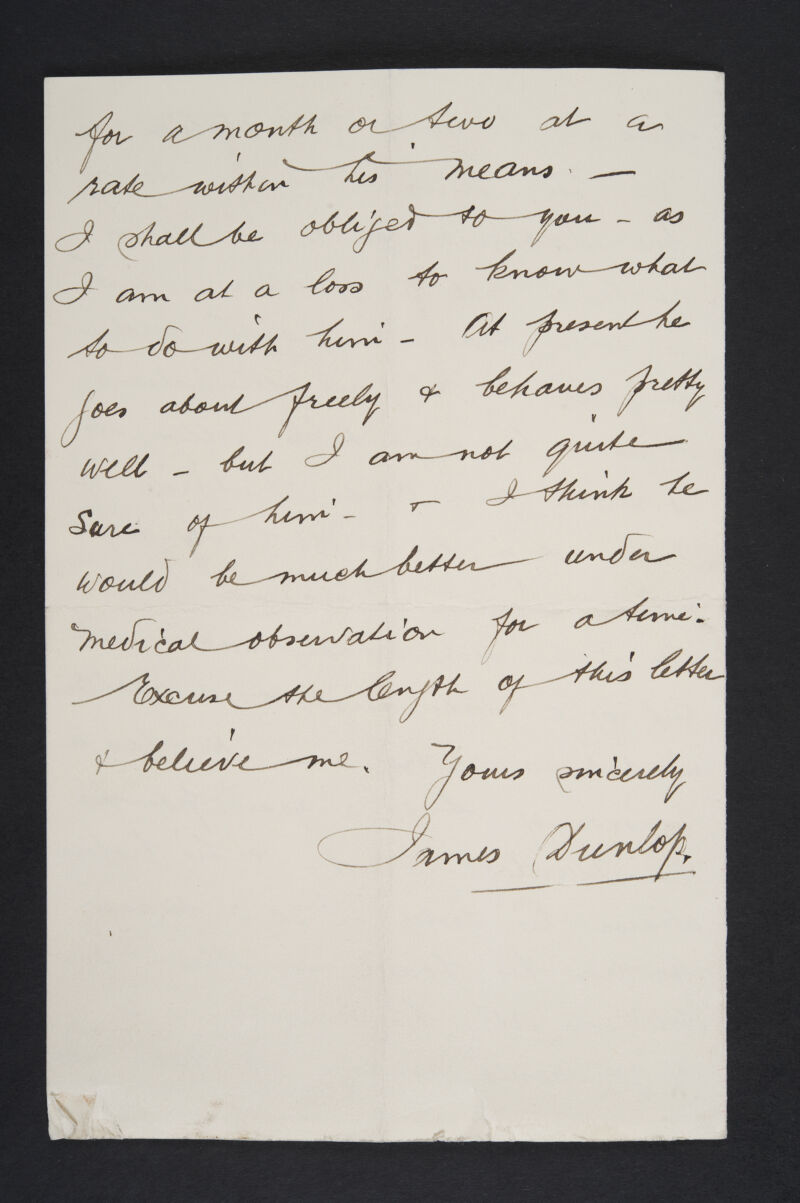 for a month or two at a
rate within his means. —
I shall be obliged to you - as
I am at a loss to know what
to do with him - At present he
goes about freely & behaves pretty
well - but I am not quite
sure of him - & I think he
would be much better under
medical observation for a time.
Excuse the length of this letter
& believe me. Yours sincerely
James Dunlop.